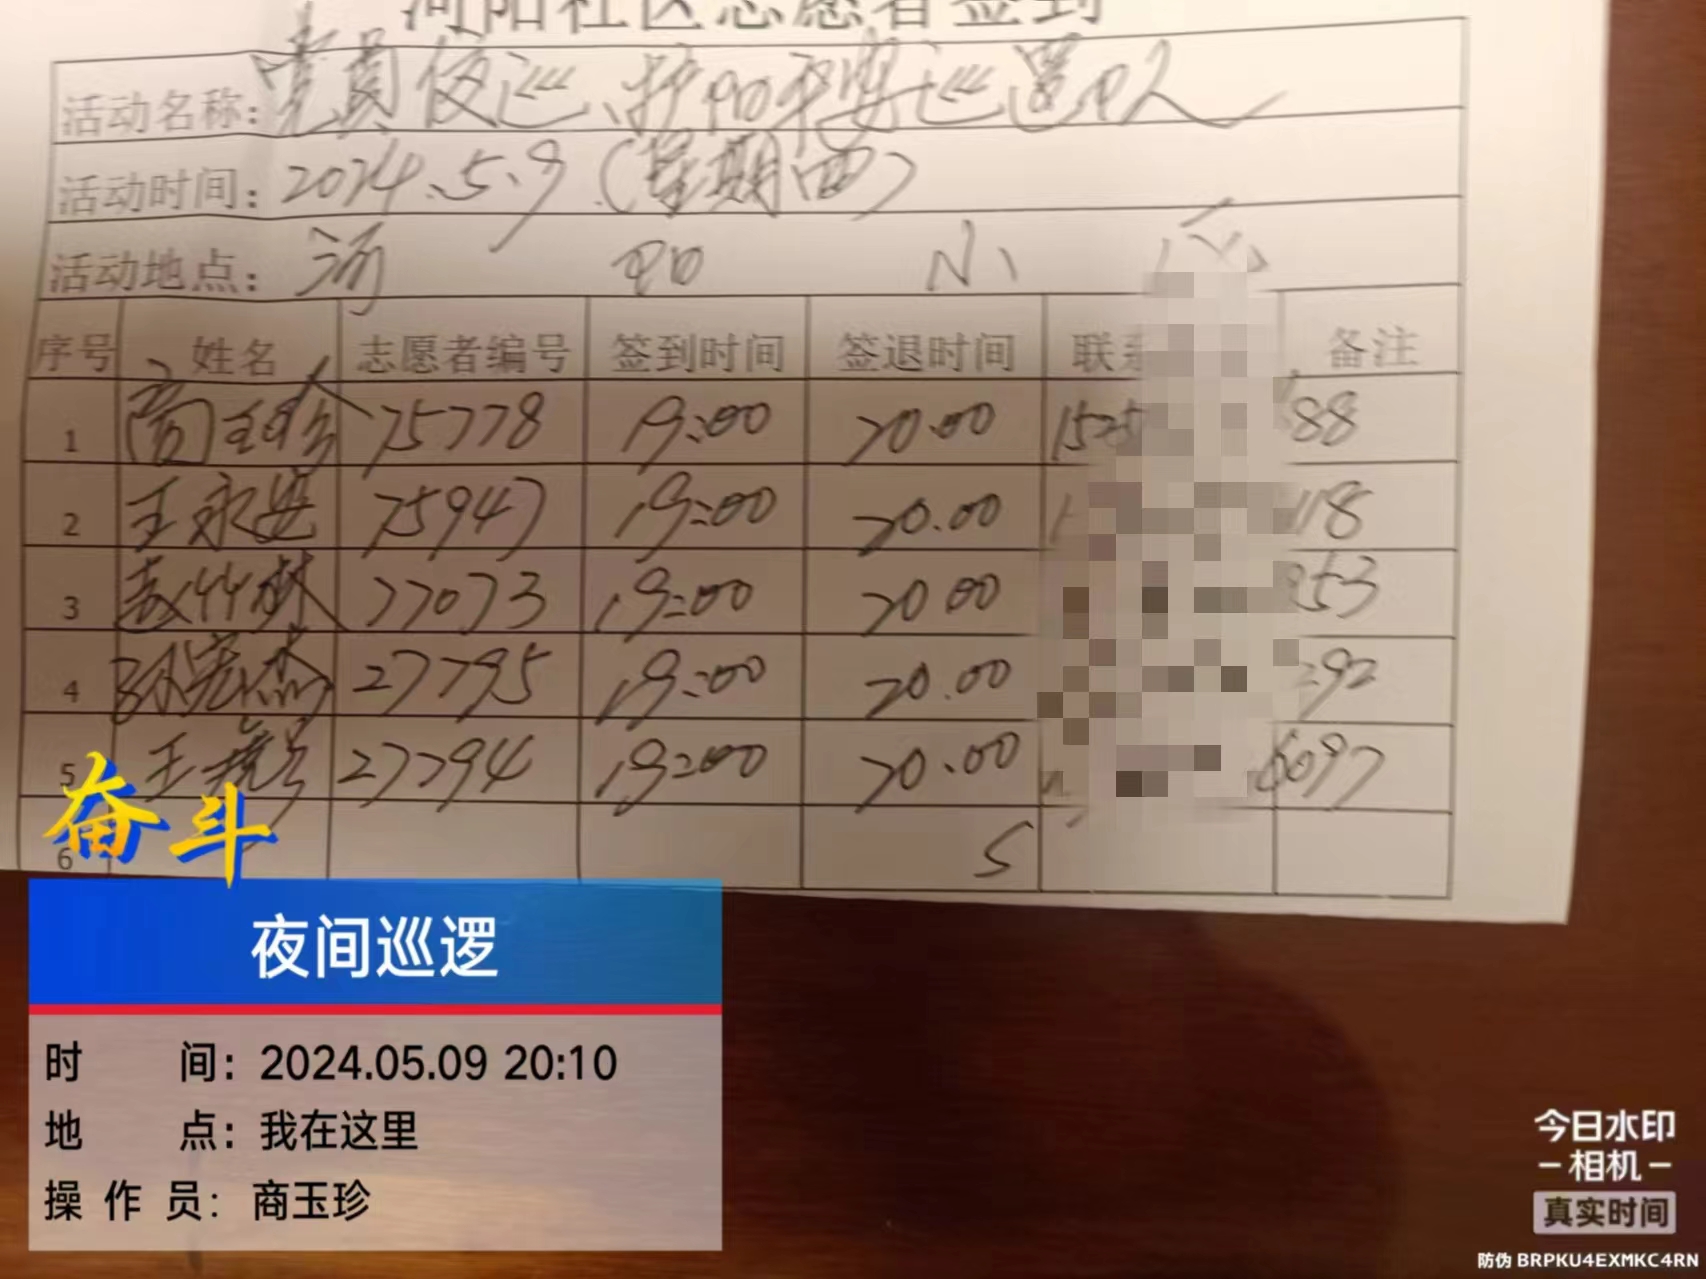 河阳社区志愿者签到
活动名称：党员夜巡、护平安巡逻
活动时间：2024.5.9（星期四）
活动地点：河阳小区
序号 姓名 志愿者编号 签到时间 签退时间 联系 备注
1 商玉珍 75778 19:00 20.00 1525 88
2 王永安 75947 19:00 20.00 1 118
3 77073 19:00 20 00 953
4 27795 19:00 20.00 292
5 王 27794 19:00 20.00 6097
6 5
奋斗
夜间巡逻
时间：2024.05.09 20:10
地点：我在这里
操作员：商玉珍
今日水印
-相机-
真实时间
防伪 BRPKU4EXMKC4RN